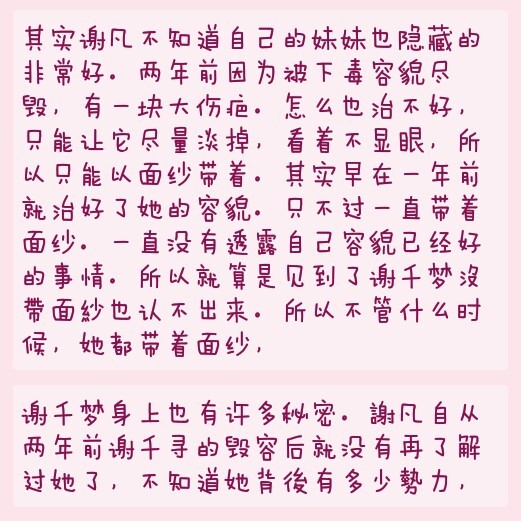 其实谢凡不知道自己的妹妹也隐藏的
非常好。两年前因为被下毒容貌尽
毁，有一块大伤疤。怎么也治不好，
只能让它尽量淡掉，看着不显眼，所
以只能以面纱带着。其实早在一年前
就治好了她的容貌。只不过一直带着
面纱。一直没有透露自己容貌已经好
的事情。所以就算是见到了谢千梦沒
帶面紗也认不出来。所以不管什么时
候，她都带着面纱，
谢千梦身上也有许多秘密。謝凡自从
两年前谢千寻的毁容后就没有再了解
过她了，不知道她背後有多少勢力，